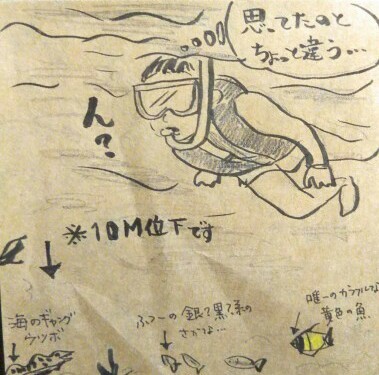 思ってたのと
ちょっと違う…
ん?
※10M位下です
海のギャング
ウツボ
ふつーの銀て黒て系の
さかな…
唯一のカラフルな
黄色の魚